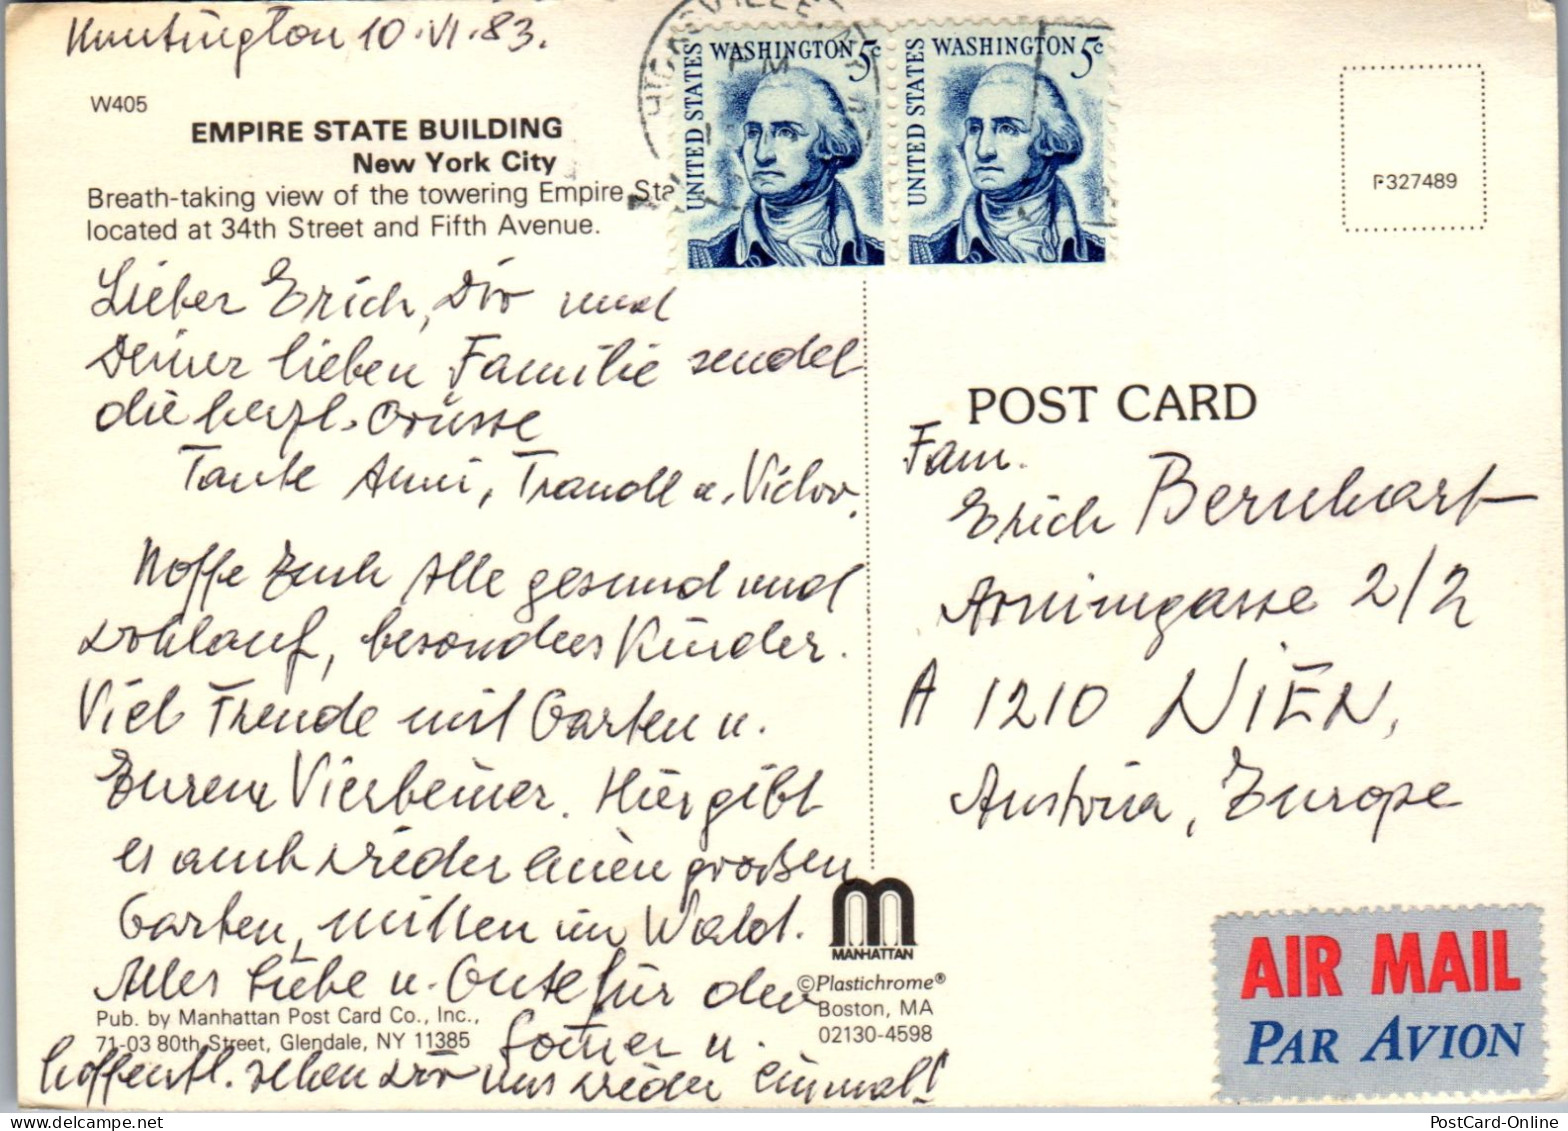 Huntington 10.VI.83.
W405
EMPIRE STATE BUILDING
New York City
Breath-taking view of the towering Empire Sta
located at 34th Street and Fifth Avenue.
Lieber Erich, Dir und
Deiner lieben Familie sendet
die herzl. Grüsse
Tante Anni, Traudl u. Victor.
Hoffe Euch Alle gesund und
wohlauf, besonders Kinder.
Viel Freude mit Garten u.
Eurem Vierbeiner. Hier gibt
es auch wieder einen großen
Garten, mitten im Wald.
Alles Liebe u. Gute für den
Sommer u.
hoffentl. sehen wir uns wieder einmal!
Pub. by Manhattan Post Card Co., Inc.,
71-03 80th Street, Glendale, NY 11385
UNITED STATES
WASHINGTON 5c
UNITED STATES
WASHINGTON 5c
PM
P327489
POST CARD
Fam.
Erich Bernhart
Arnimgasse 2/2
A 1210 WIEN,
Austria, Europe
MANHATTAN
©Plastichrome®
Boston, MA
02130-4598
AIR MAIL
PAR AVION